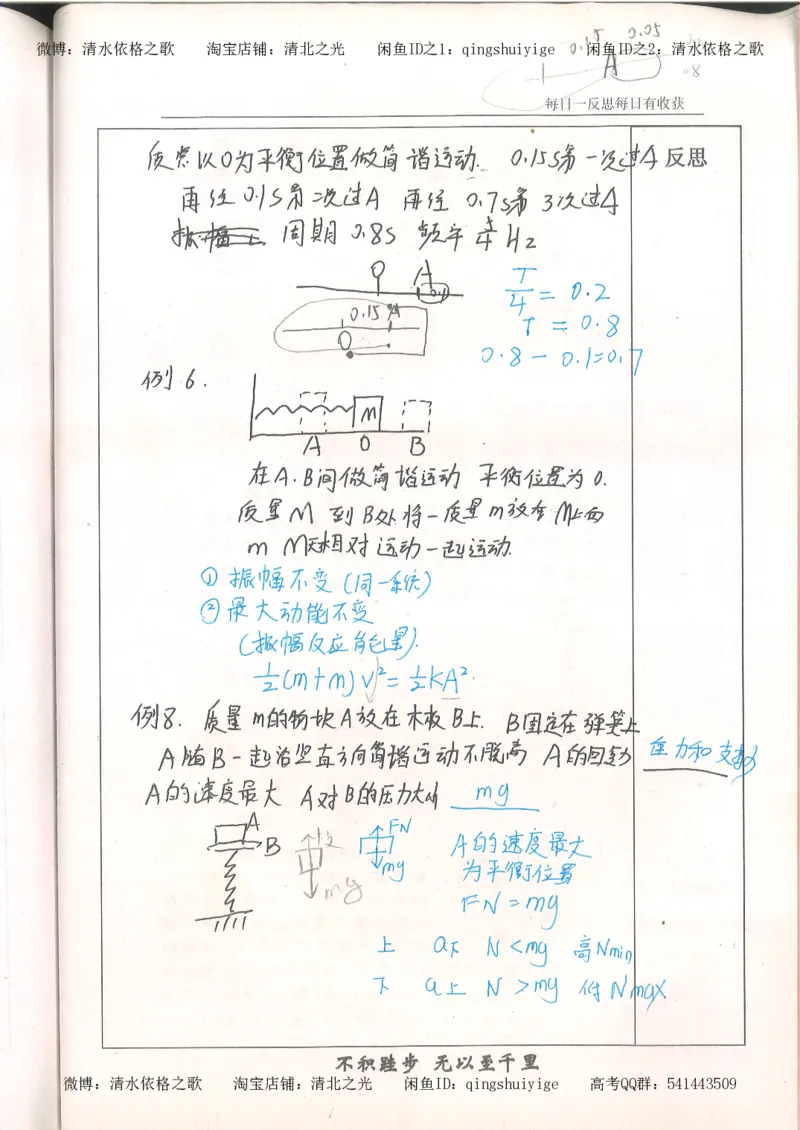 0.15 0.05
微博：清水依格之歌 淘宝店铺：清北之光 闲鱼ID之1：qingshuiyige 闲鱼ID之2：清水依格之歌
A 0.8
每日一反思每日有收获
质点以O为平衡位置做简谐运动. 0.15s第一次过A 反思
再经0.1s第二次过A 再经 0.7s第3次过A
振幅 周期 0.8s 频率 5/4 Hz
O A
0.1
0.15 A
O
T/4 = 0.2
T = 0.8
0.8 - 0.1 = 0.7
例 6.
m
A O B
在A.B间做简谐运动 平衡位置为O.
质量M 到B处将一质量m放在M上面
m M无相对运动一起运动.
① 振幅不变 (同一系统)
② 最大动能不变
(振幅反应能量).
½(m+m)v²=½KA².
例8. 质量m的物块A放在木板B上. B固定在弹簧上
A随B一起沿竖直方向简谐运动不脱离 A的回复力 重力和支持力
A的速度最大 A对B的压力大小 mg
A
B
mg
FN
mg
A的速度最大
为平衡位置
FN=mg
上 a下 N<mg 高Nmin
下 a上 N>mg 低Nmax
不积跬步 无以至千里
微博：清水依格之歌 淘宝店铺：清北之光 闲鱼ID：qingshuiyige 高考QQ群：541443509